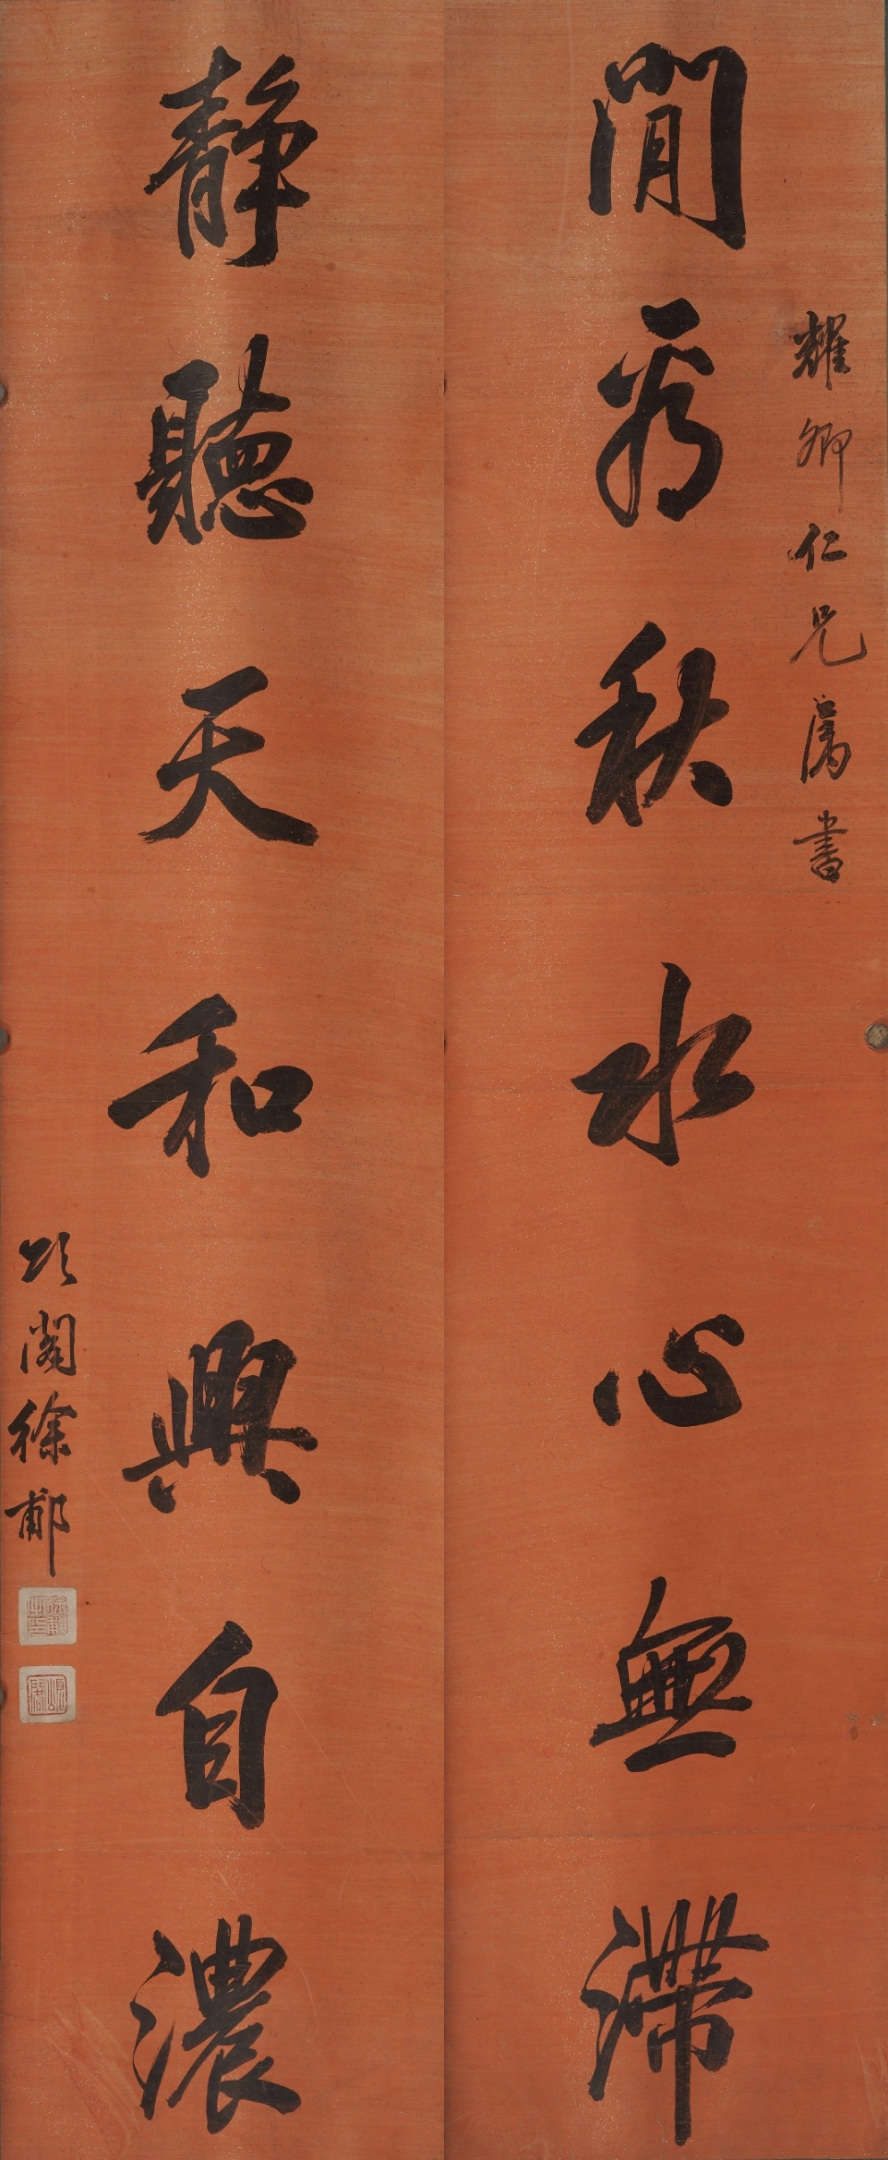 耀卿仁兄属書
閒看秋水心無滯
靜聽天和興自濃
頌閣徐郙